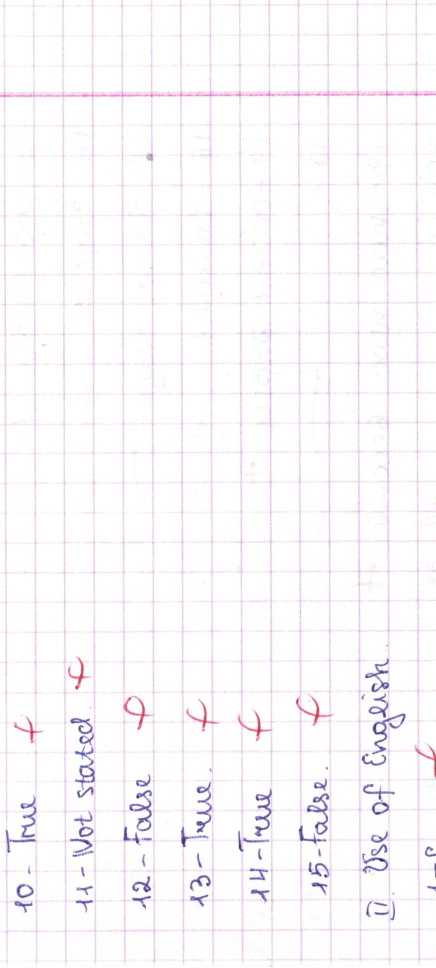 10 - True +
11 - Not stated. +
12 - False
13 - True. +
14 - True +
15 - False. +
II. Use of English.